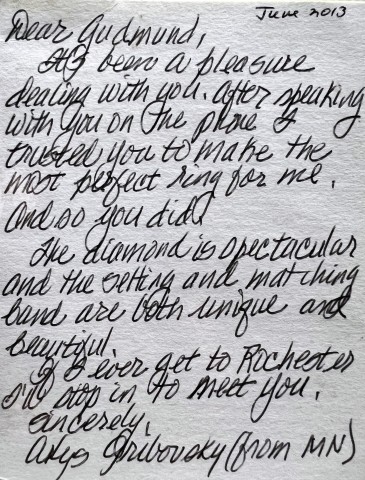 June 2013
Dear Gudmund,
It's been a pleasure
dealing with you. After speaking
with you on the phone I
trusted you to make the
most perfect ring for me.
And so you did!
The diamond is spectacular
and the setting and matching
band are both unique and
beautiful.
If I ever get to Rochester
I'll stop in to meet you.
Sincerely,
Gribovsky (from MN)